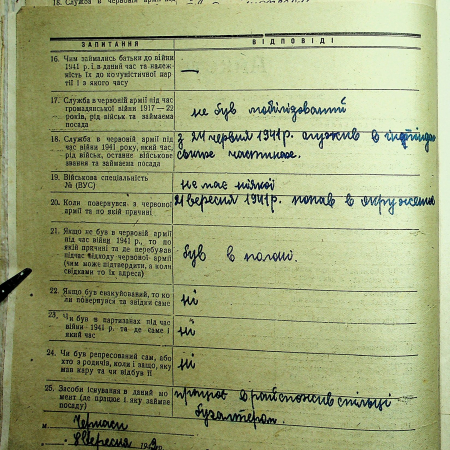 18. Служба в червоній армії
ЗАПИТАННЯ ВІДПОВІДІ
16. Чим займались батьки до війни
1941 р. і в даний час та належ-
ність їх до комуністичної пар-
тії і з якого часу
—
17. Служба в червоній армії під час
громадянської війни 1917—22
років, рід військ та займаєма
посада
не був мобілізований
18. Служба в червоній армії під
час війни 1941 року, який час,
рід військ, останнє військове
звання та займаєма посада
з 24 червня 1941 р. служив в
ських частинах.
19. Військова спеціальність
№ (ВУС)
не має ніякої
20. Коли повернувся з червоної
армії та по якій причині
21 вересня 1941 р. попав в окруження
21. Якщо не був в червоній армії
під час війни 1941 р., то по
якій причині та де перебував
підчас відходу червоної армії
(чим може підтвердити, з яких
свідками то їх адреса)
був в полоні.
22. Якщо був евакуйований, то ко-
ли повернувся та звідки саме
ні
23. Чи був в партизанах під час
війни 1941 р. та де саме і
який час
ні
24. Чи був репресований сам, або
хто з родичів, коли і защо, яку
мав кару та чи відбув її
ні
25. Засоби існування в даний мо-
мент (де працює і яку займає
посаду)
працює в райспоживспілці
бухалтером.
м Черкаси
8 вересня